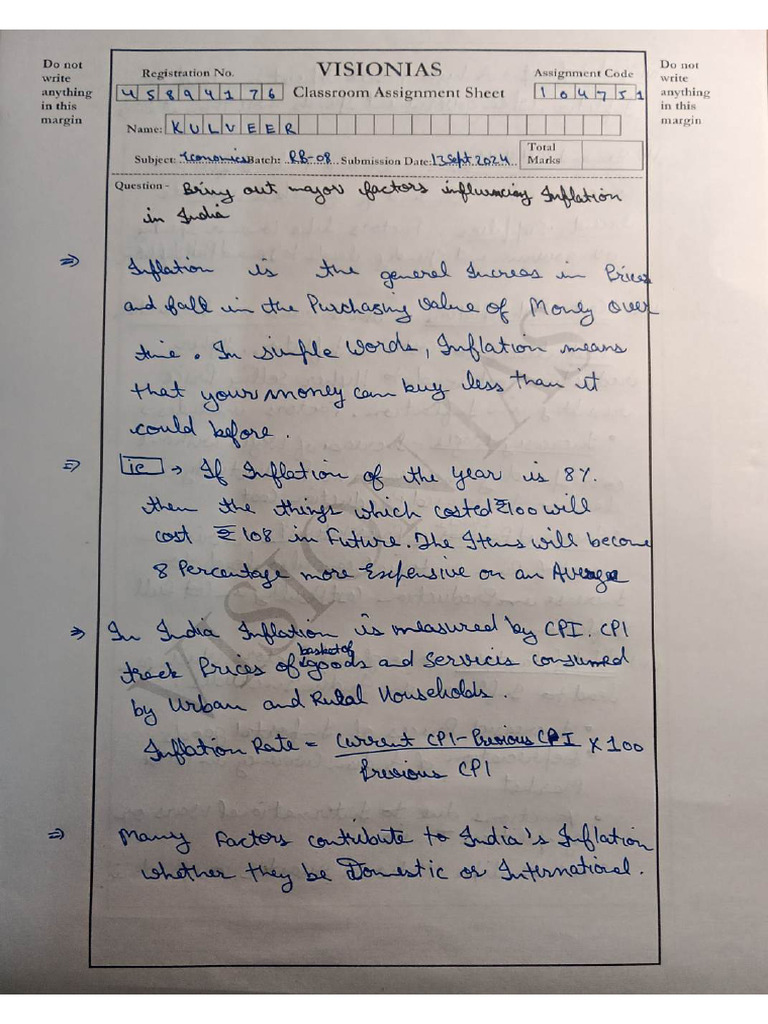 Do not
write
anything
in this
margin
Registration No.
VISIONIAS
Assignment Code
Do not
write
anything
in this
margin
45894176
Classroom Assignment Sheet
104751
Name: KULVEER
Subject: Economics Batch: RB-08 Submission Date: 13 Sept 2024
Total
Marks
Question - Bring out major factors influencing Inflation
in India
⇒ Inflation is the general Increas in Prices
and fall in the Purchasing Value of Money over
time. In simple words, Inflation means
that your money can buy less than it
could before.
⇒ ie → If Inflation of the year is 8%.
then the things which costed ₹100 will
cost ₹108 in Future. The Items will become
8 Percentage more Expensive on an Average
⇒ In India Inflation is measured by CPI. CPI
basket of
track Prices of goods and Servicis consumed
by Urban and Rural Households.
Inflation Rate = Current CPI - Previous CPI × 100
Previous CPI
⇒ Many Factors contribute to India's Inflation
whether they be Domestic or International.
VISION IAS